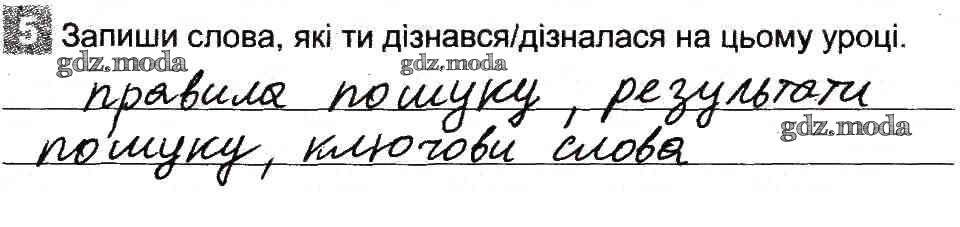 5 Запиши слова, які ти дізнався/дізналася на цьому уроці.
gdz.moda gdz.moda
правила пошуку, результати
gdz.moda
пошуку, ключови слова